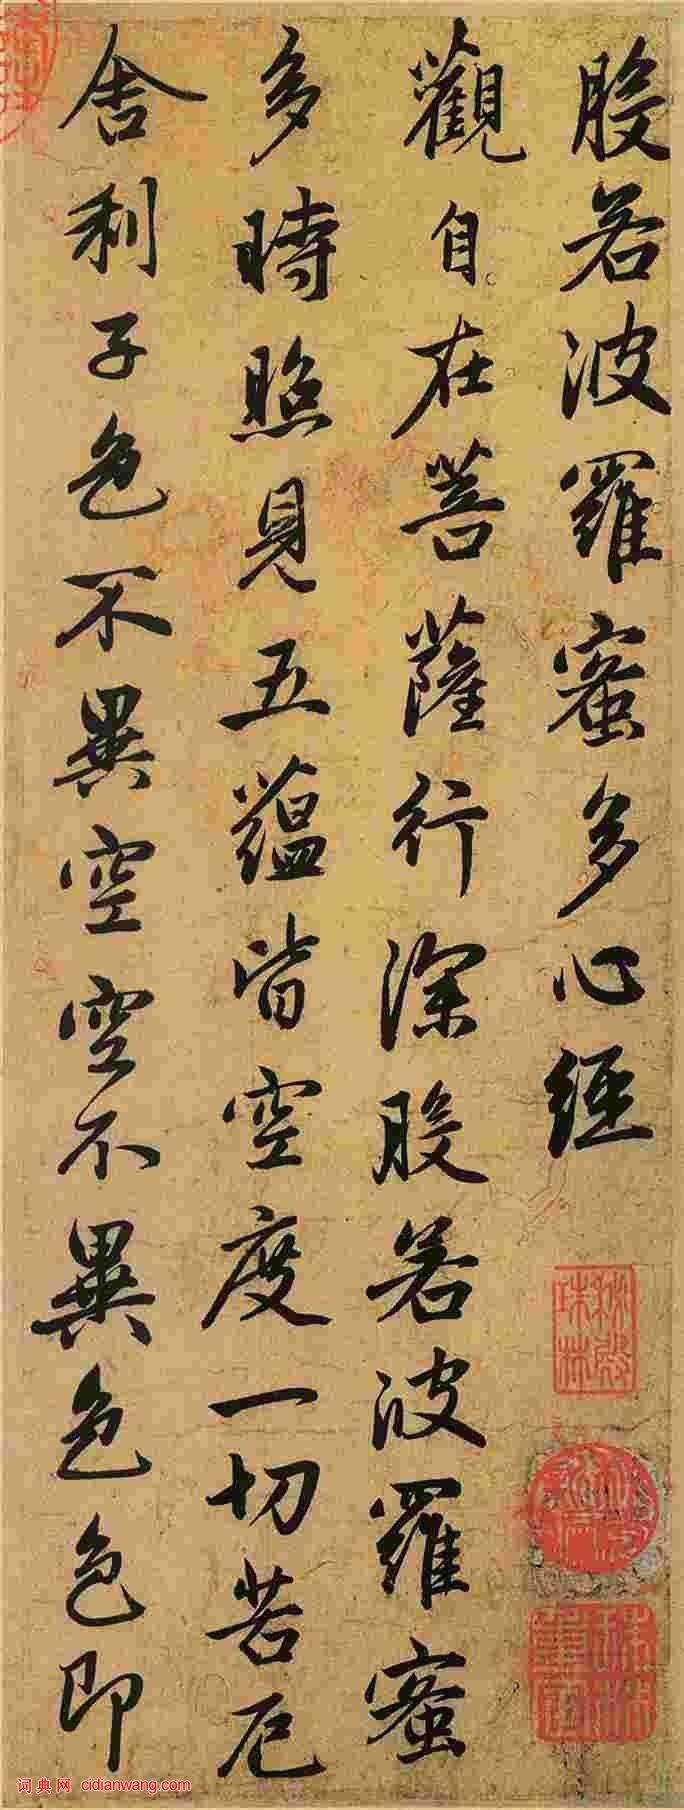 般若波羅蜜多心經
觀自在菩薩行深般若波羅蜜
多時照見五蘊皆空度一切苦厄
舍利子色不異空空不異色色即
秘殿珠林
词典网 cidianwang.com